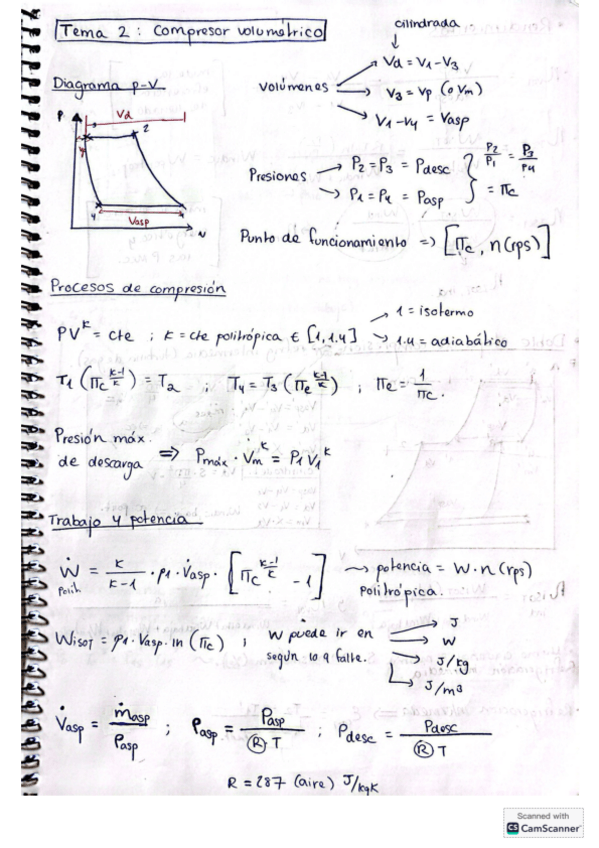 Tema 2: Compresor volumétrico
cilindrada
Diagrama p-V
P
Vd
3
2
4
1
Vasp
V
Volúmenes
Vd = V1 - V3
V3 = Vp (o Vm)
V1 - V4 = Vasp
Presiones
P2 = P3 = Pdesc
P1 = P4 = Pasp
P2/P1 = P3/P4 = Πc
Punto de funcionamiento => [Πc, n(rps)]
Procesos de compresión
PV^k = cte ; k = cte politrópica ∈ [1, 1.4]
1 = isotermo
1.4 = adiabático
T1 (Πc^(k-1/k)) = T2 ; T4 = T3 (Πe^(k-1/k)) ; Πe = 1/Πc
Presión máx.
de descarga => Pmáx · Vm^k = P1 V1^k
Trabajo y potencia
Ẇ polit. = k/(k-1) · p1 · V̇asp · [Πc^(k-1/k) - 1] ~> potencia = W·n(rps)
politrópica.
Wisot = p1 · Vasp · ln (Πc) ; W puede ir en
según lo q falte.
J
W
J/kg
J/m3
V̇asp = ṁasp/ρasp ; ρasp = Pasp/(R T) ; ρdesc = Pdesc/(R T)
R = 287 (aire) J/kgK
Scanned with
CS CamScanner